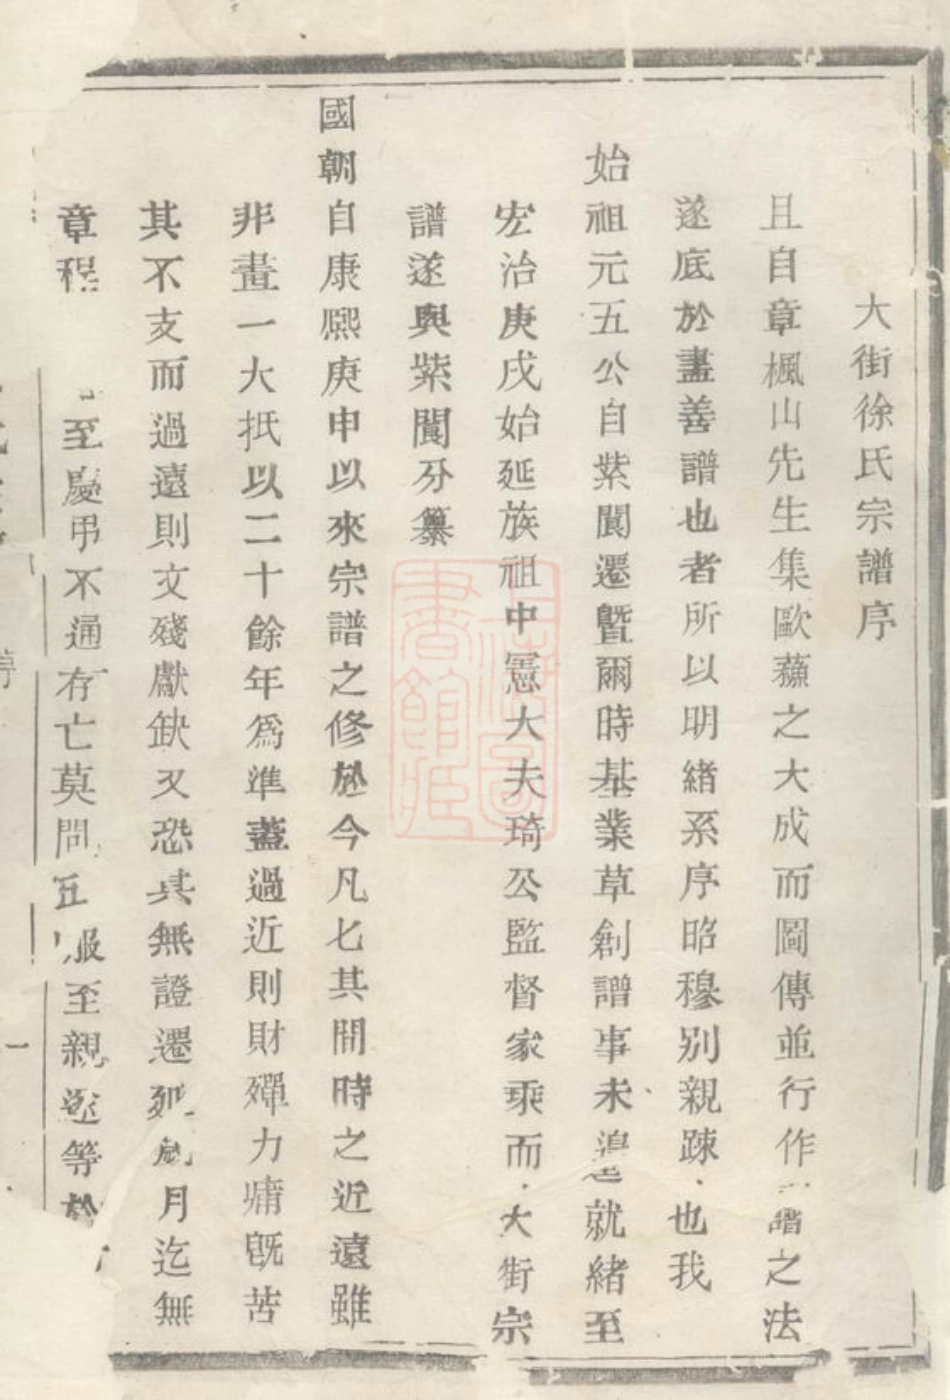 大街徐氏宗譜序
且自章楓山先生集歐蘓之大成而圖傳並行作譜之法
遂底於盡善譜也者所以明緒系序昭穆别親踈也我
始祖元五公自紫閬遷曁爾時基業草創譜事未遑就緒至
宏治庚戌始延族祖中憲大夫琦公監督家乘而大街宗
譜遂與紫閬分纂
國朝自康熙庚申以來宗譜之修於今凡七其間時之近遠雖
非畫一大抵以二十餘年爲準蓋過近則財殫力痡旣苦
其不支而過遠則文殘獻缺又恐其無證遷延歲月迄無
章程
至慶弔不通存亡莫問五服至親逐等於
序
一
上海圖書館藏